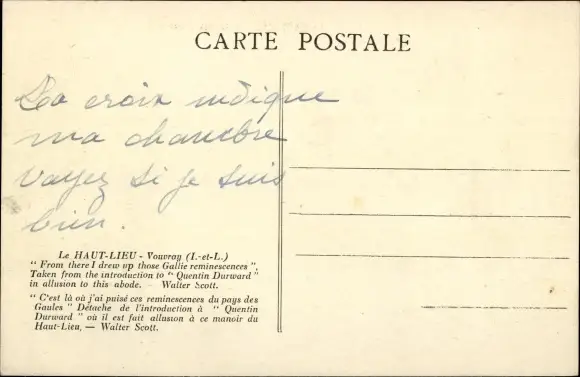 CARTE POSTALE
La croix indique
ma chambre
Voyez si je suis
bien.
Le HAUT-LIEU - Vouvray (I.-et-L.)
“ From there I drew up those Gallic reminescences ”,
Taken from the introduction to “ Quentin Durward ”
in allusion to this abode. Walter Scott.
“ C'est là où j'ai puisé ces reminescences du pays des
Gaules ” Détache de l'introduction à “ Quentin
Durward ” où il est fait allusion à ce manoir du
Haut-Lieu, — Walter Scott.